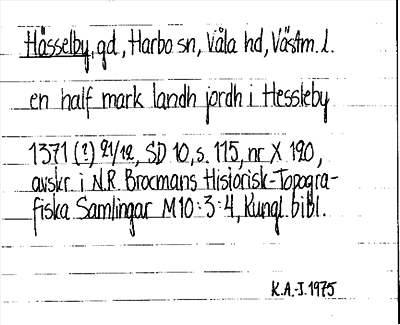 Hässelby, gd, Harbo sn, Våla hd, Västm. l.
en half mark landh jordh i Hessleby
1371 (?) 21/12, SD 10, s. 115, nr X 190,
avskr. i N.R. Brocmans Historisk-Topogra-
fiska Samlingar M 10:3:4, Kungl. bibl.
K.A.-J. 1975